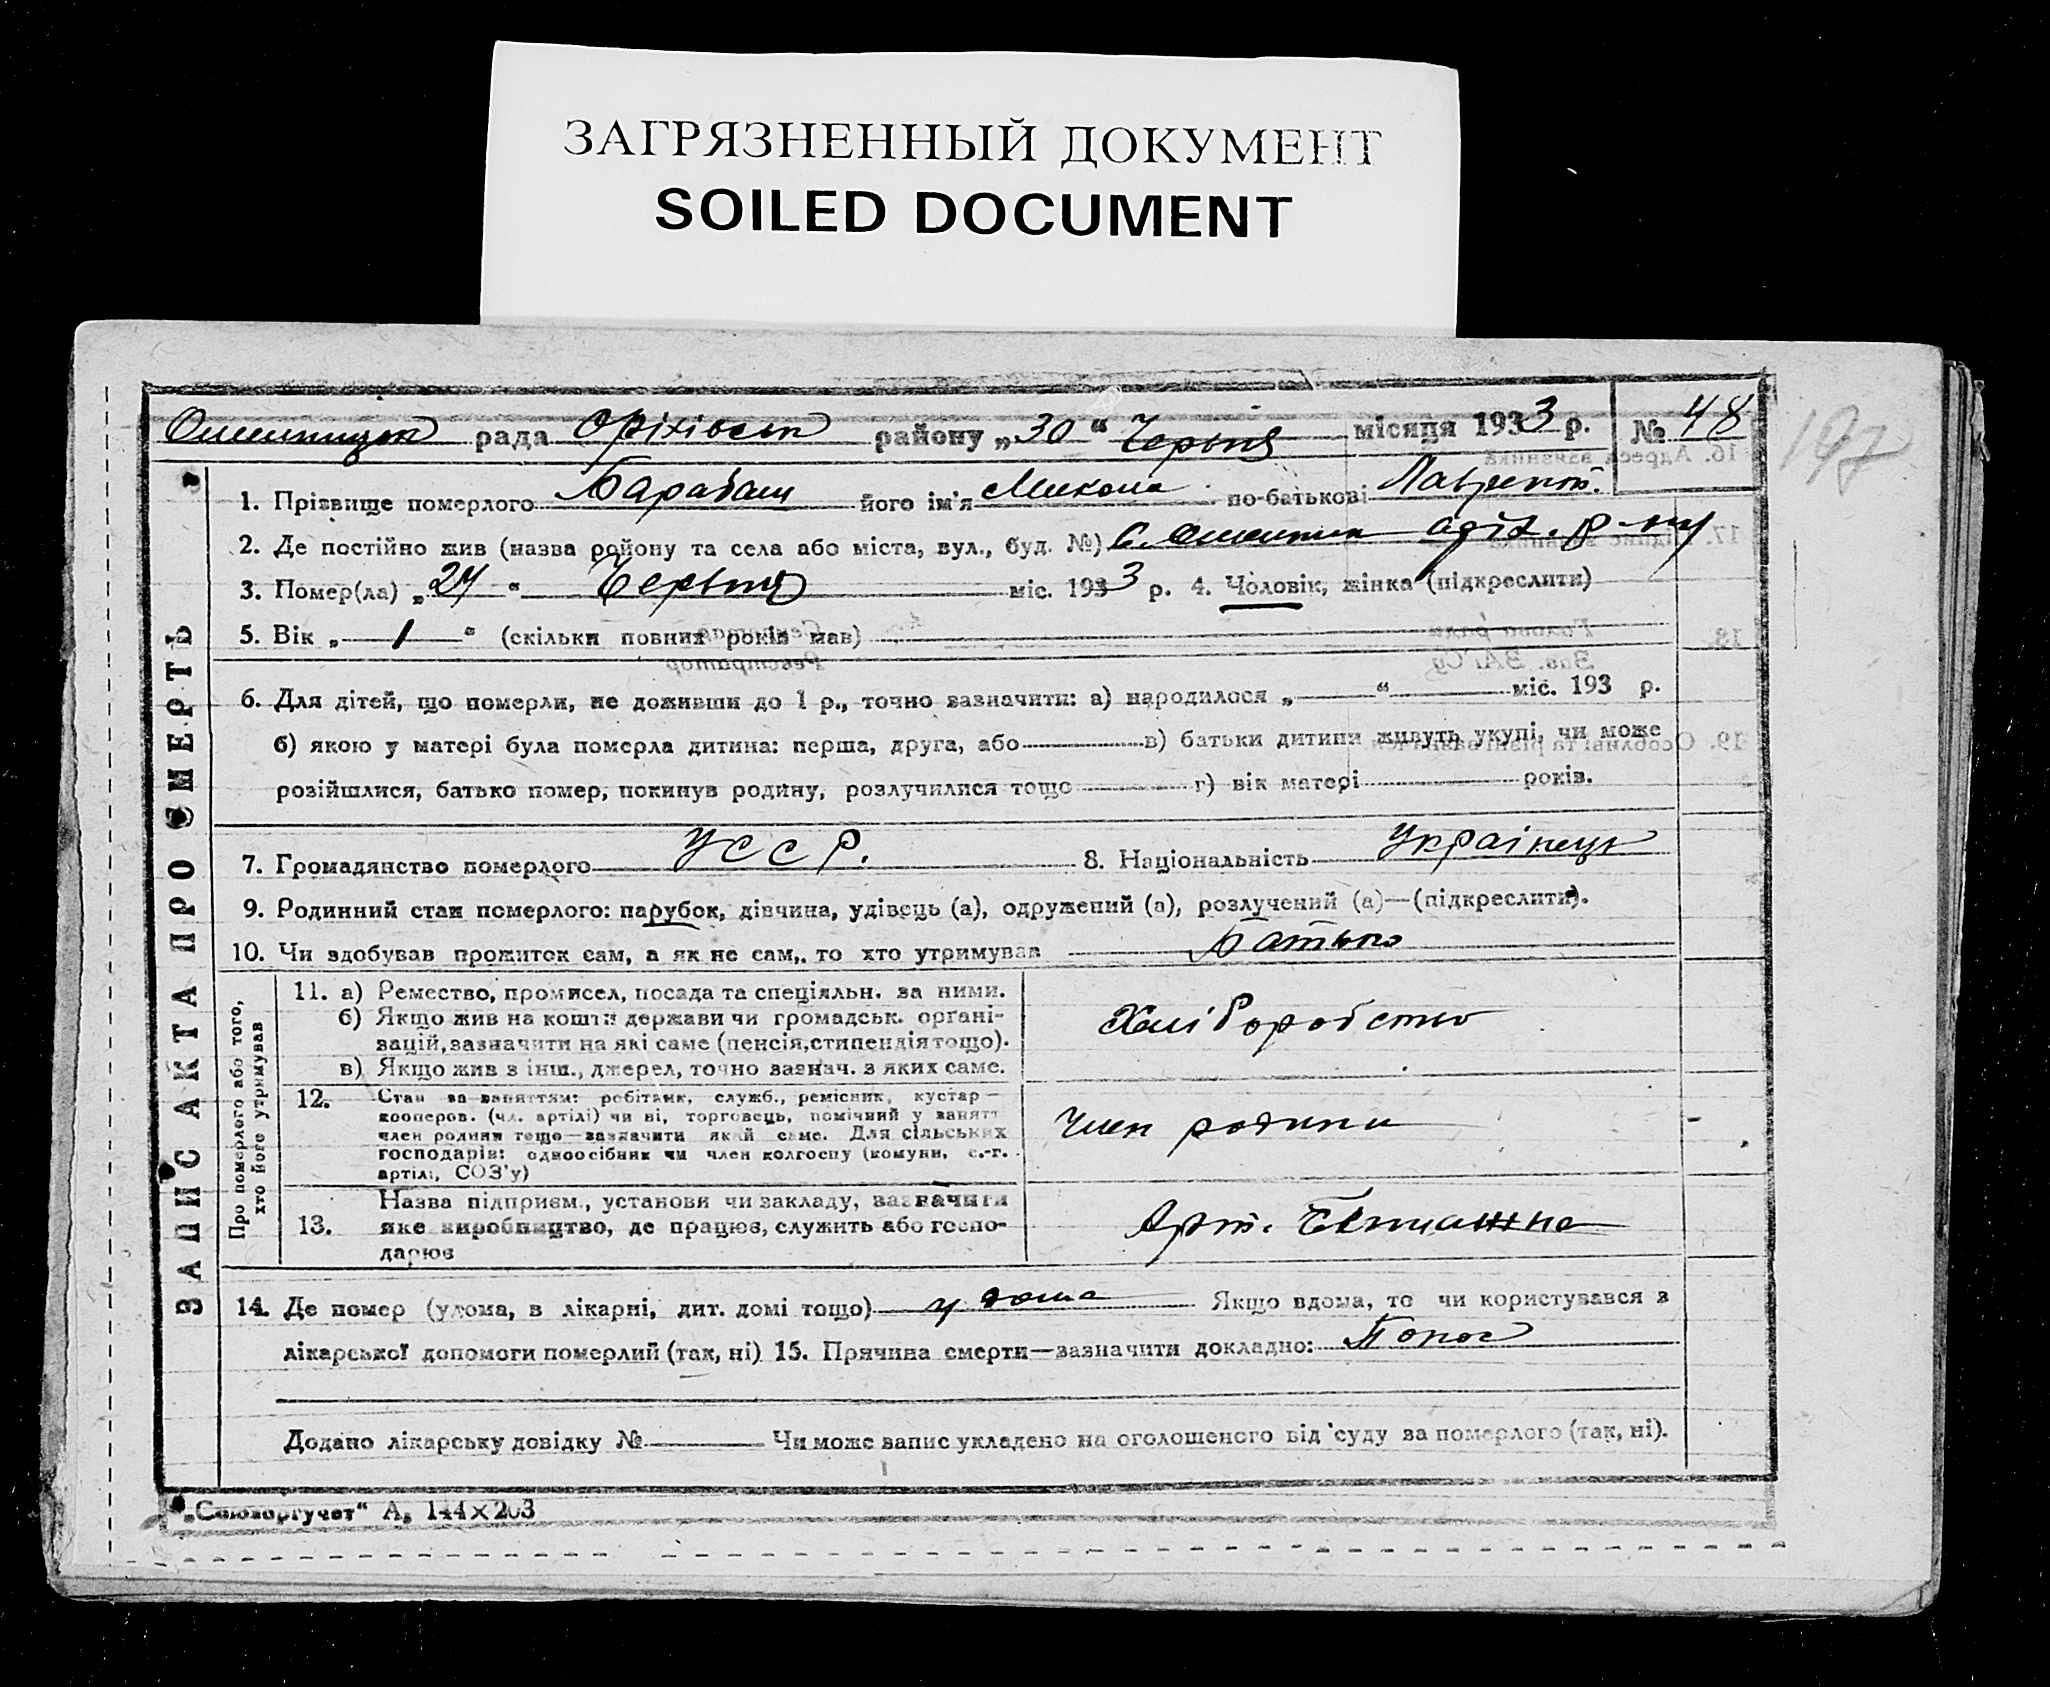 ЗАГРЯЗНЕННЫЙ ДОКУМЕНТ
SOILED DOCUMENT
рада Оріхівськ району „30“ Червня місяця 1933 р. № 48
197
ЗАПИС АКТА ПРО СМЕРТЬ
1. Прізвище померлого Барабаш його ім'я Микола по-батькові Лаврент.
2. Де постійно жив (назва району та села або міста, вул., буд. №) С.
3. Помер(ла) „24“ Червня міс. 1933 р. 4. Чоловік, жінка (підкреслити)
5. Вік „1“ (скільки повних років мав)
6. Для дітей, що померли, не доживши до 1 р., точно зазначити: а) народилося „ “ міс. 193 р.
б) якою у матері була померла дитина: перша, друга, або в) батьки дитини живуть укупі, чи може
розійшлися, батько помер, покинув родину, розлучилися тощо г) вік матері років.
7. Громадянство померлого УССР. 8. Національність Українець
9. Родинний стан померлого: парубок, дівчина, удівець (а), одружений (а), розлучений (а)—(підкреслити).
10. Чи здобував прожиток сам, а як не сам, то хто утримував Батько
Про померлого або того,
хто його утримував
11. а) Ремество, промисел, посада та спеціяльн. за ними.
б) Якщо жив на кошти держави чи громадськ. органі-
зацій, зазначити на які саме (пенсія, стипендія тощо).
в) Якщо жив з інш., джерел, точно зазнач. з яких саме.
Хліборобство
12. Стан за заняттям: робітник, служб., ремісник, кустар—
кооперов. (чл. артілі) чи ні, торговець, помічний у занятт
член родини тощо—зазначити який саме. Для сільських
господарів: одноосібник чи член колгоспу (комуни, с.-г.
артілі, СОЗ'у)
Член родини
13. Назва підприєм., установи чи закладу, зазначити
яке виробництво, де працює, служить або госпо-
дарює
Арт.
14. Де помер (удома, в лікарні, дит. домі тощо) у дома Якщо вдома, то чи користувався з
лікарської допомоги померлий (так, ні) 15. Причина смерти—зазначити докладно: Понос
Додано лікарську довідку № Чи може запис укладено на оголошеного від суду за померлого (так, ні).
„Союзоргучет“ А₅ 144×203